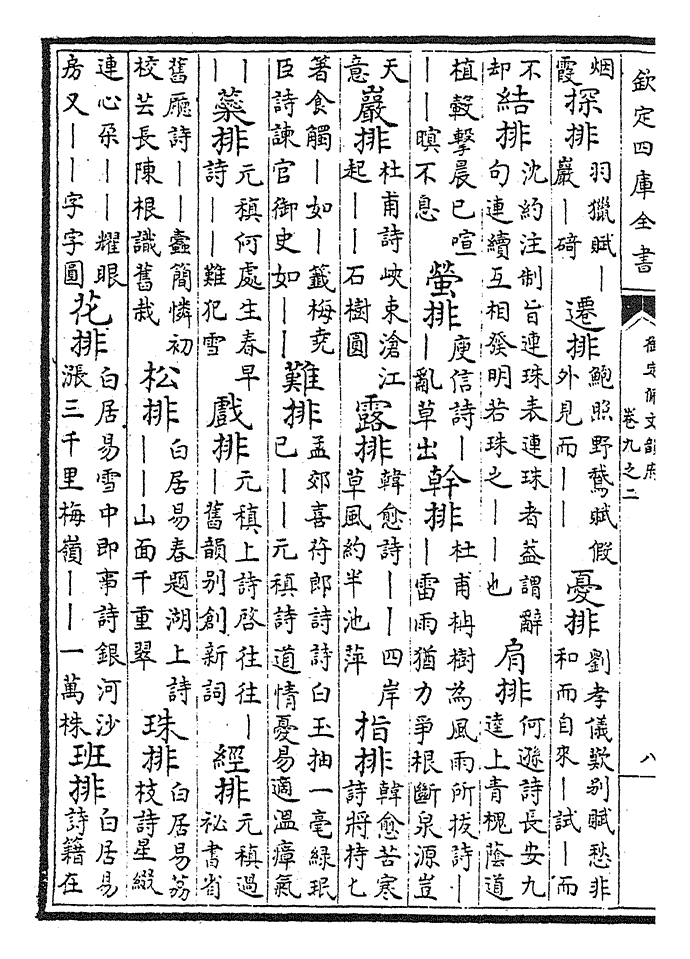 欽定四庫全書
御定佩文韻府
卷九之二
八
烟霞探排羽獵賦丨巖丨碕遷排鮑照野鵞賦假外見而丨丨憂排劉孝儀歎别賦愁非和而自來丨試丨而
不却結排沈約注制旨連珠表連珠者葢謂辭句連續互相發明若珠之丨丨也肩排何遜詩長安九逵上青槐蔭道
植轂擊晨已喧丨丨暝不息螢排庾信詩丨丨亂草出幹排杜甫柟樹為風雨所拔詩丨丨雷雨猶力爭根斷泉源豈
天意巖排杜甫詩峽東滄江起丨丨石樹圓露排韓愈詩丨丨四岸草風約半池萍指排韓愈苦寒詩將持匕
箸食觸丨如丨籖梅堯臣詩諫官御史如丨丨難排孟郊喜符郎詩詩白玉抽一毫綠珉已丨丨元稹詩道情憂易適溫瘴氣
丨丨藥排元稹何處生春早詩丨丨難犯雪戲排元稹上詩啓往往丨丨舊韻别創新詞經排元稹過祕書省
舊廳詩丨丨蠹簡憐初校芸長陳根識舊栽松排白居易春題湖上詩丨丨山面千重翠珠排白居易荔枝詩星綴
連心朶丨丨耀眼房又丨丨字字圓花排白居易雪中即事詩銀河沙漲三千里梅嶺丨丨一萬株班排白居易詩籍在